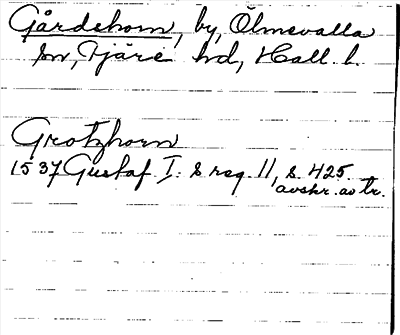 Gårdehorn, by, Ölmevalla
sn, Fjäre hd, Hall. l.
Grotzhorn
1537 Gustaf I:s reg. 11, s. 425.
avskr. av tr.